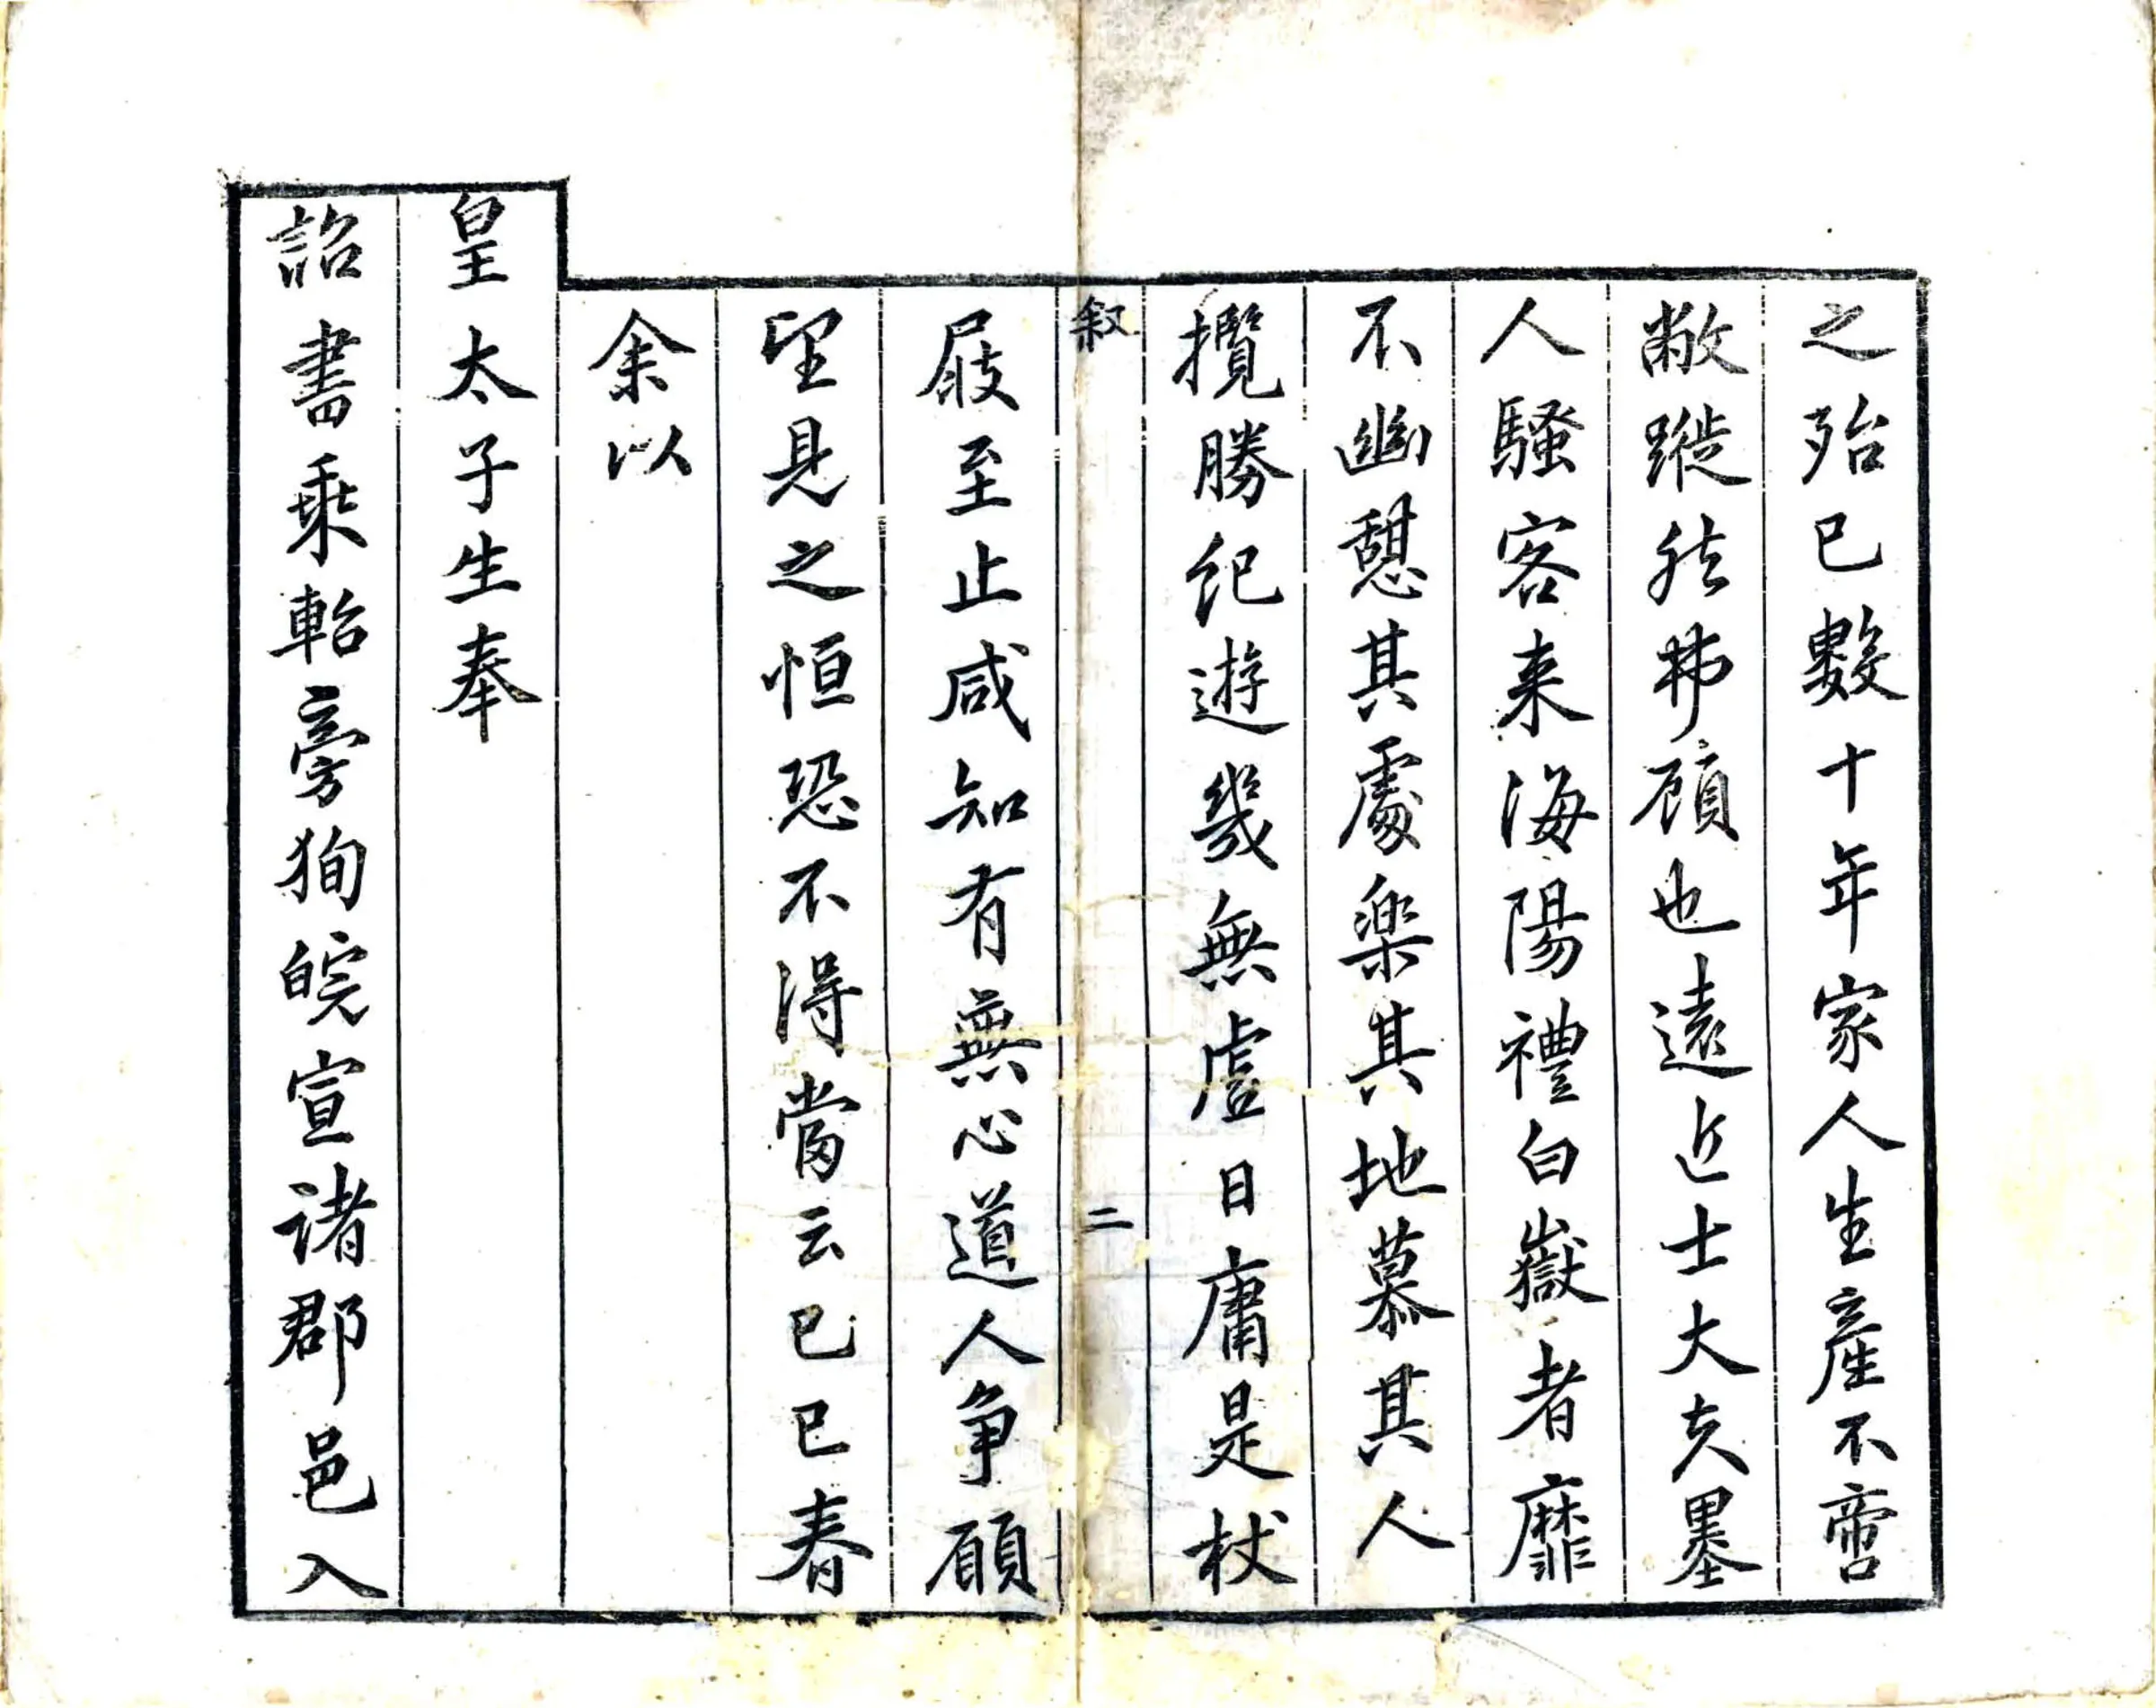 之殆已數十年家人生產不啻
敝蹤然弗顧也遠近士大夫墨
人騷客来海陽禮白嶽者靡
不幽憩其處樂其地慕其人
攬勝紀遊幾無虛日庸是杖
叙
二
屐至止咸知有無心道人争願
望見之恒恐不得當云己巳春
余以
皇太子生奉
詔書乘軺旁狥皖宣諸郡邑入